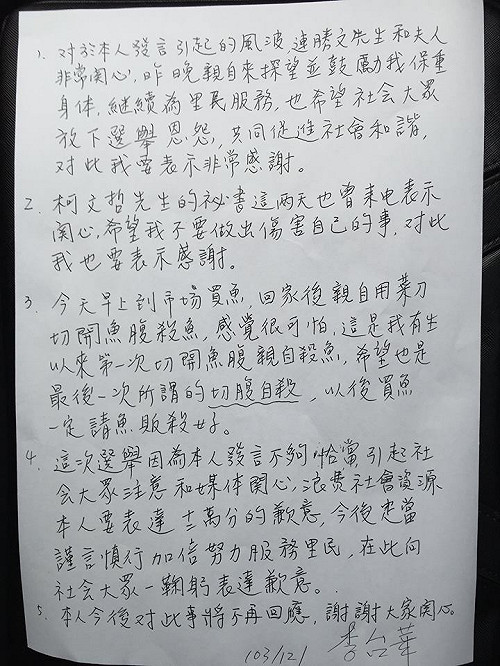 1. 对於本人發言引起的風波,連勝文先生和夫人
非常関心,昨晚親自來探望並鼓勵我保重
身体,継續為里民服務,也希望社会大眾
放下選舉恩怨,共同促進社會和諧,
对此我要表示非常感謝。
2. 柯文哲先生的祕書這兩天也曾来电表示
関心,希望我不要做出傷害自己的事,对此
我也要表示感謝。
3. 今天早上到市場買魚,回家後親自用菜刀
切開魚腹殺魚,感覺很可怕,這是我有生
以來第一次切開魚腹親自殺魚,希望也是
最後一次所謂的切腹自殺,以後買魚
一定請魚販殺好。
4. 這次選舉因為本人發言不夠恰當,引起社
会大眾注意和媒体関心,浪费社會資源
本人要表達十二萬分的歉意,今後定當
謹言慎行加倍努力服務里民,在此向
社会大眾一鞠躬表達歉意。
5. 本人今後对此事將不再回應,謝謝大家関心。
103/12/1 李台華